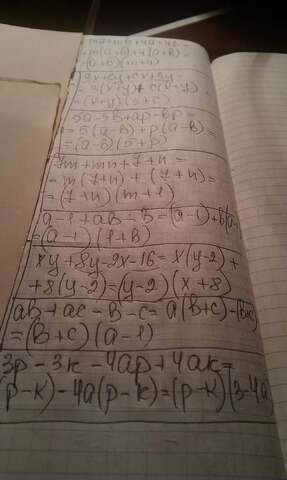 ma+mb+4a+4b=
=m(a+b)+4(a+b)=
=(a+b)(m+4)
3x+cy+cx+3y=
=3(x+y)+c(x+y)=
=(x+y)(3+c)
5a-5b+ap-bp=
=5(a-b)+p(a-b)=
=(a-b)(5+p)
7m+mn+7+n=
=m(7+n)+(7+n)=
=(7+n)(m+1)
a-1+ab-b=(a-1)+b(a-
=(a-1)(1+b)
xy+8y-2x-16=x(y-2)+
+8(y-2)=(y-2)(x+8)
ab+ac-b-c=a(b+c)-(b+c)
=(b+c)(a-1)
3p-3k-4ap+4ak=
(p-k)-4a(p-k)=(p-k)(3-4a